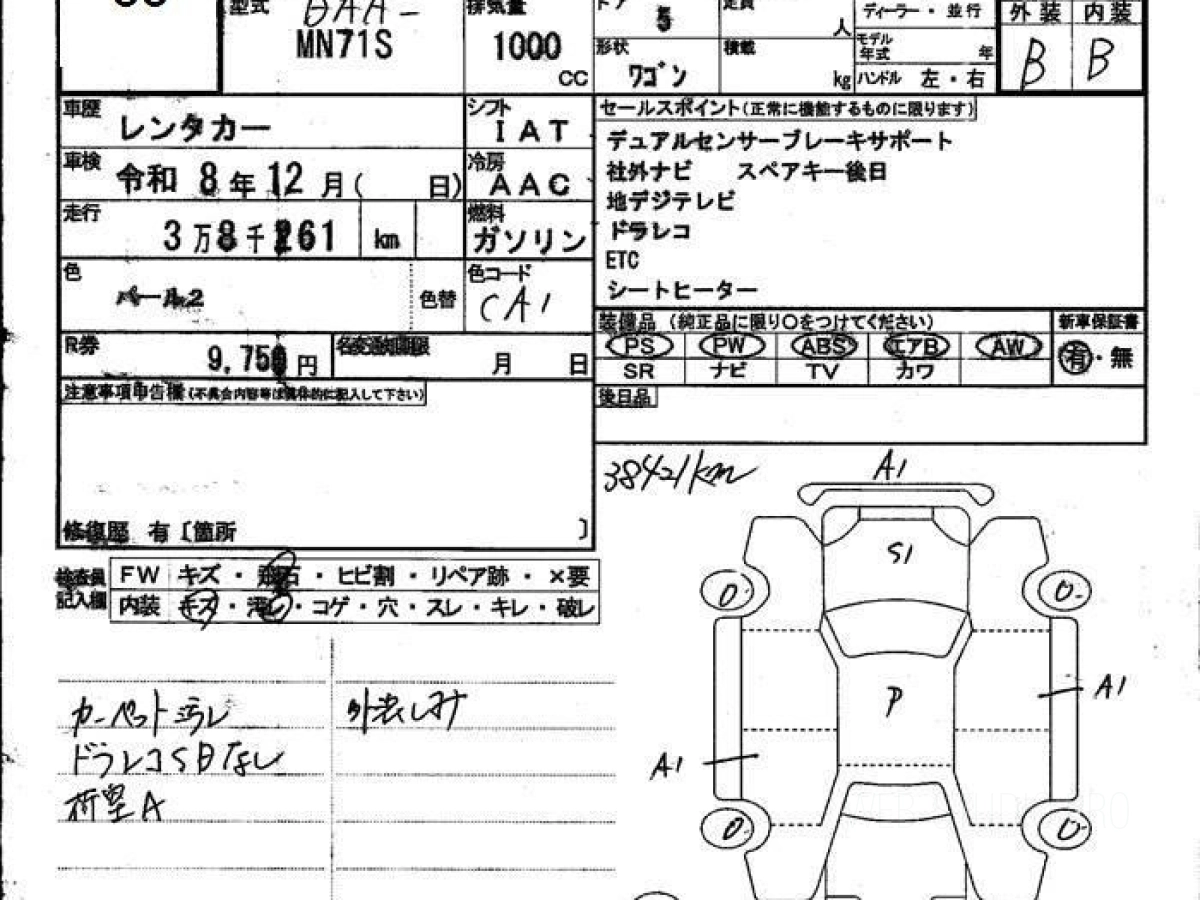 型式 DAA-
MN71S
排気量 1000 CC
ドア 5
定員 人
形状 ワゴン
積載 kg
ディーラー・並行
モデル年式 年
ハンドル 左・右
外装 内装
B B
車歴 レンタカー
シフト IAT
車検 令和 8年 12月( 日)
冷房 AAC
走行 3万8千261 km
燃料 ガソリン
色 パール2
色替
色コード CA1
R券 9,750円
名変期限 月 日
セールスポイント(正常に機能するものに限ります)
デュアルセンサーブレーキサポート
社外ナビ スペアキー後日
地デジテレビ
ドラレコ
ETC
シートヒーター
装備品 (純正品に限り○をつけてください)
新車保証書
PS PW ABS エアB AW
有・無
SR ナビ TV カワ
後日品
注意事項申告欄(不具合内容等は具体的に記入して下さい)
修復歴 有〔箇所 〕
検査員記入欄
FW キズ・飛石・ヒビ割・リペア跡・×要
内装 キズ・汚レ・コゲ・穴・スレ・キレ・破レ
カーペット汚レ
外装しみ
ドラレコSDなし
荷室A
38421km
A1
S1
P
A1
A1